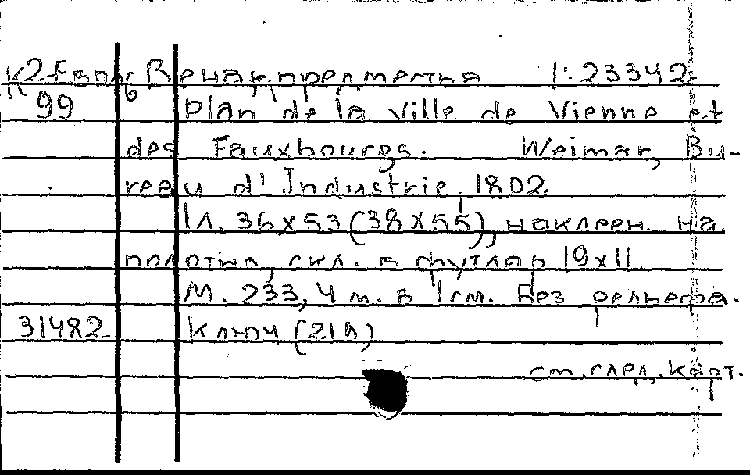 К2-Европ Вена, предместья 1:23342
99 Plan de la ville de Vienne et
des Fauxbourgs. Weimar, Bu-
reau d'Industrie, 1802
1л. 36x53(38x55), наклеен на
полотна, скл. в футляр 19x11
М. 233,4 м. в 1см. Без рельефа.
31482 Ключ (219)
см. след. карт.